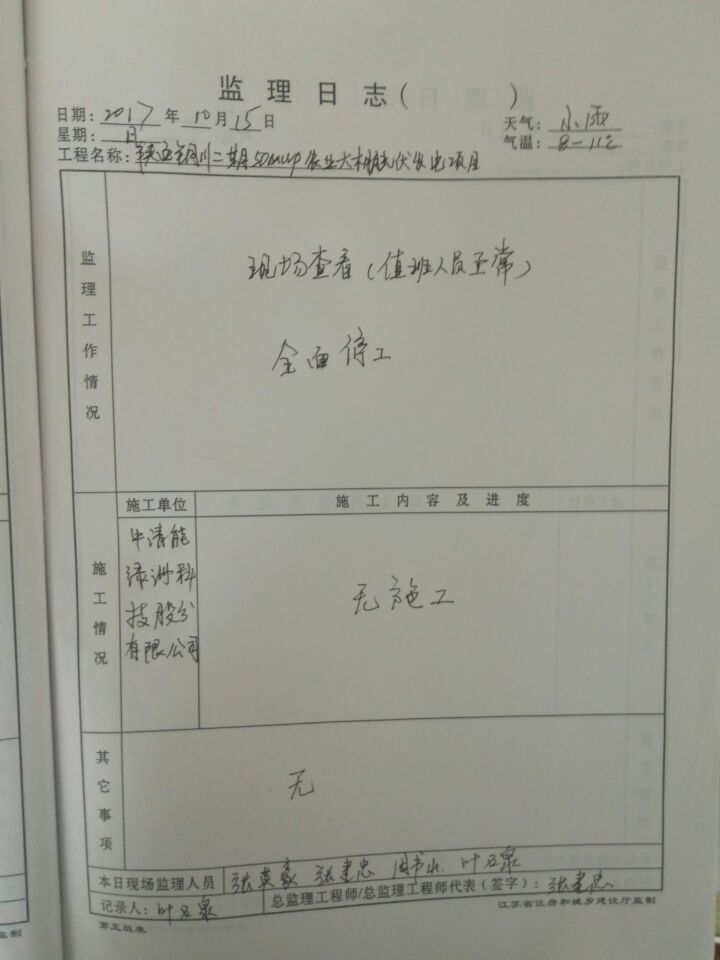 监理日志( )
日期: 2017 年 10 月 15 日
天气: 小雨
星期: 日
气温: 8-11℃
工程名称: 铜川二期50MWp农业大棚光伏发电项目
监理工作情况
现场查看(值班人员正常)
全面停工
施工单位
施工内容及进度
施工情况
中清能
绿洲科
技股份
有限公司
无施工
其它事项
无
本日现场监理人员 张英豪 张建忠 周书山 叶玉泉
记录人: 叶玉泉
总监理工程师/总监理工程师代表(签字): 张建忠
第五版表
江苏省住房和城乡建设厅监制
监制